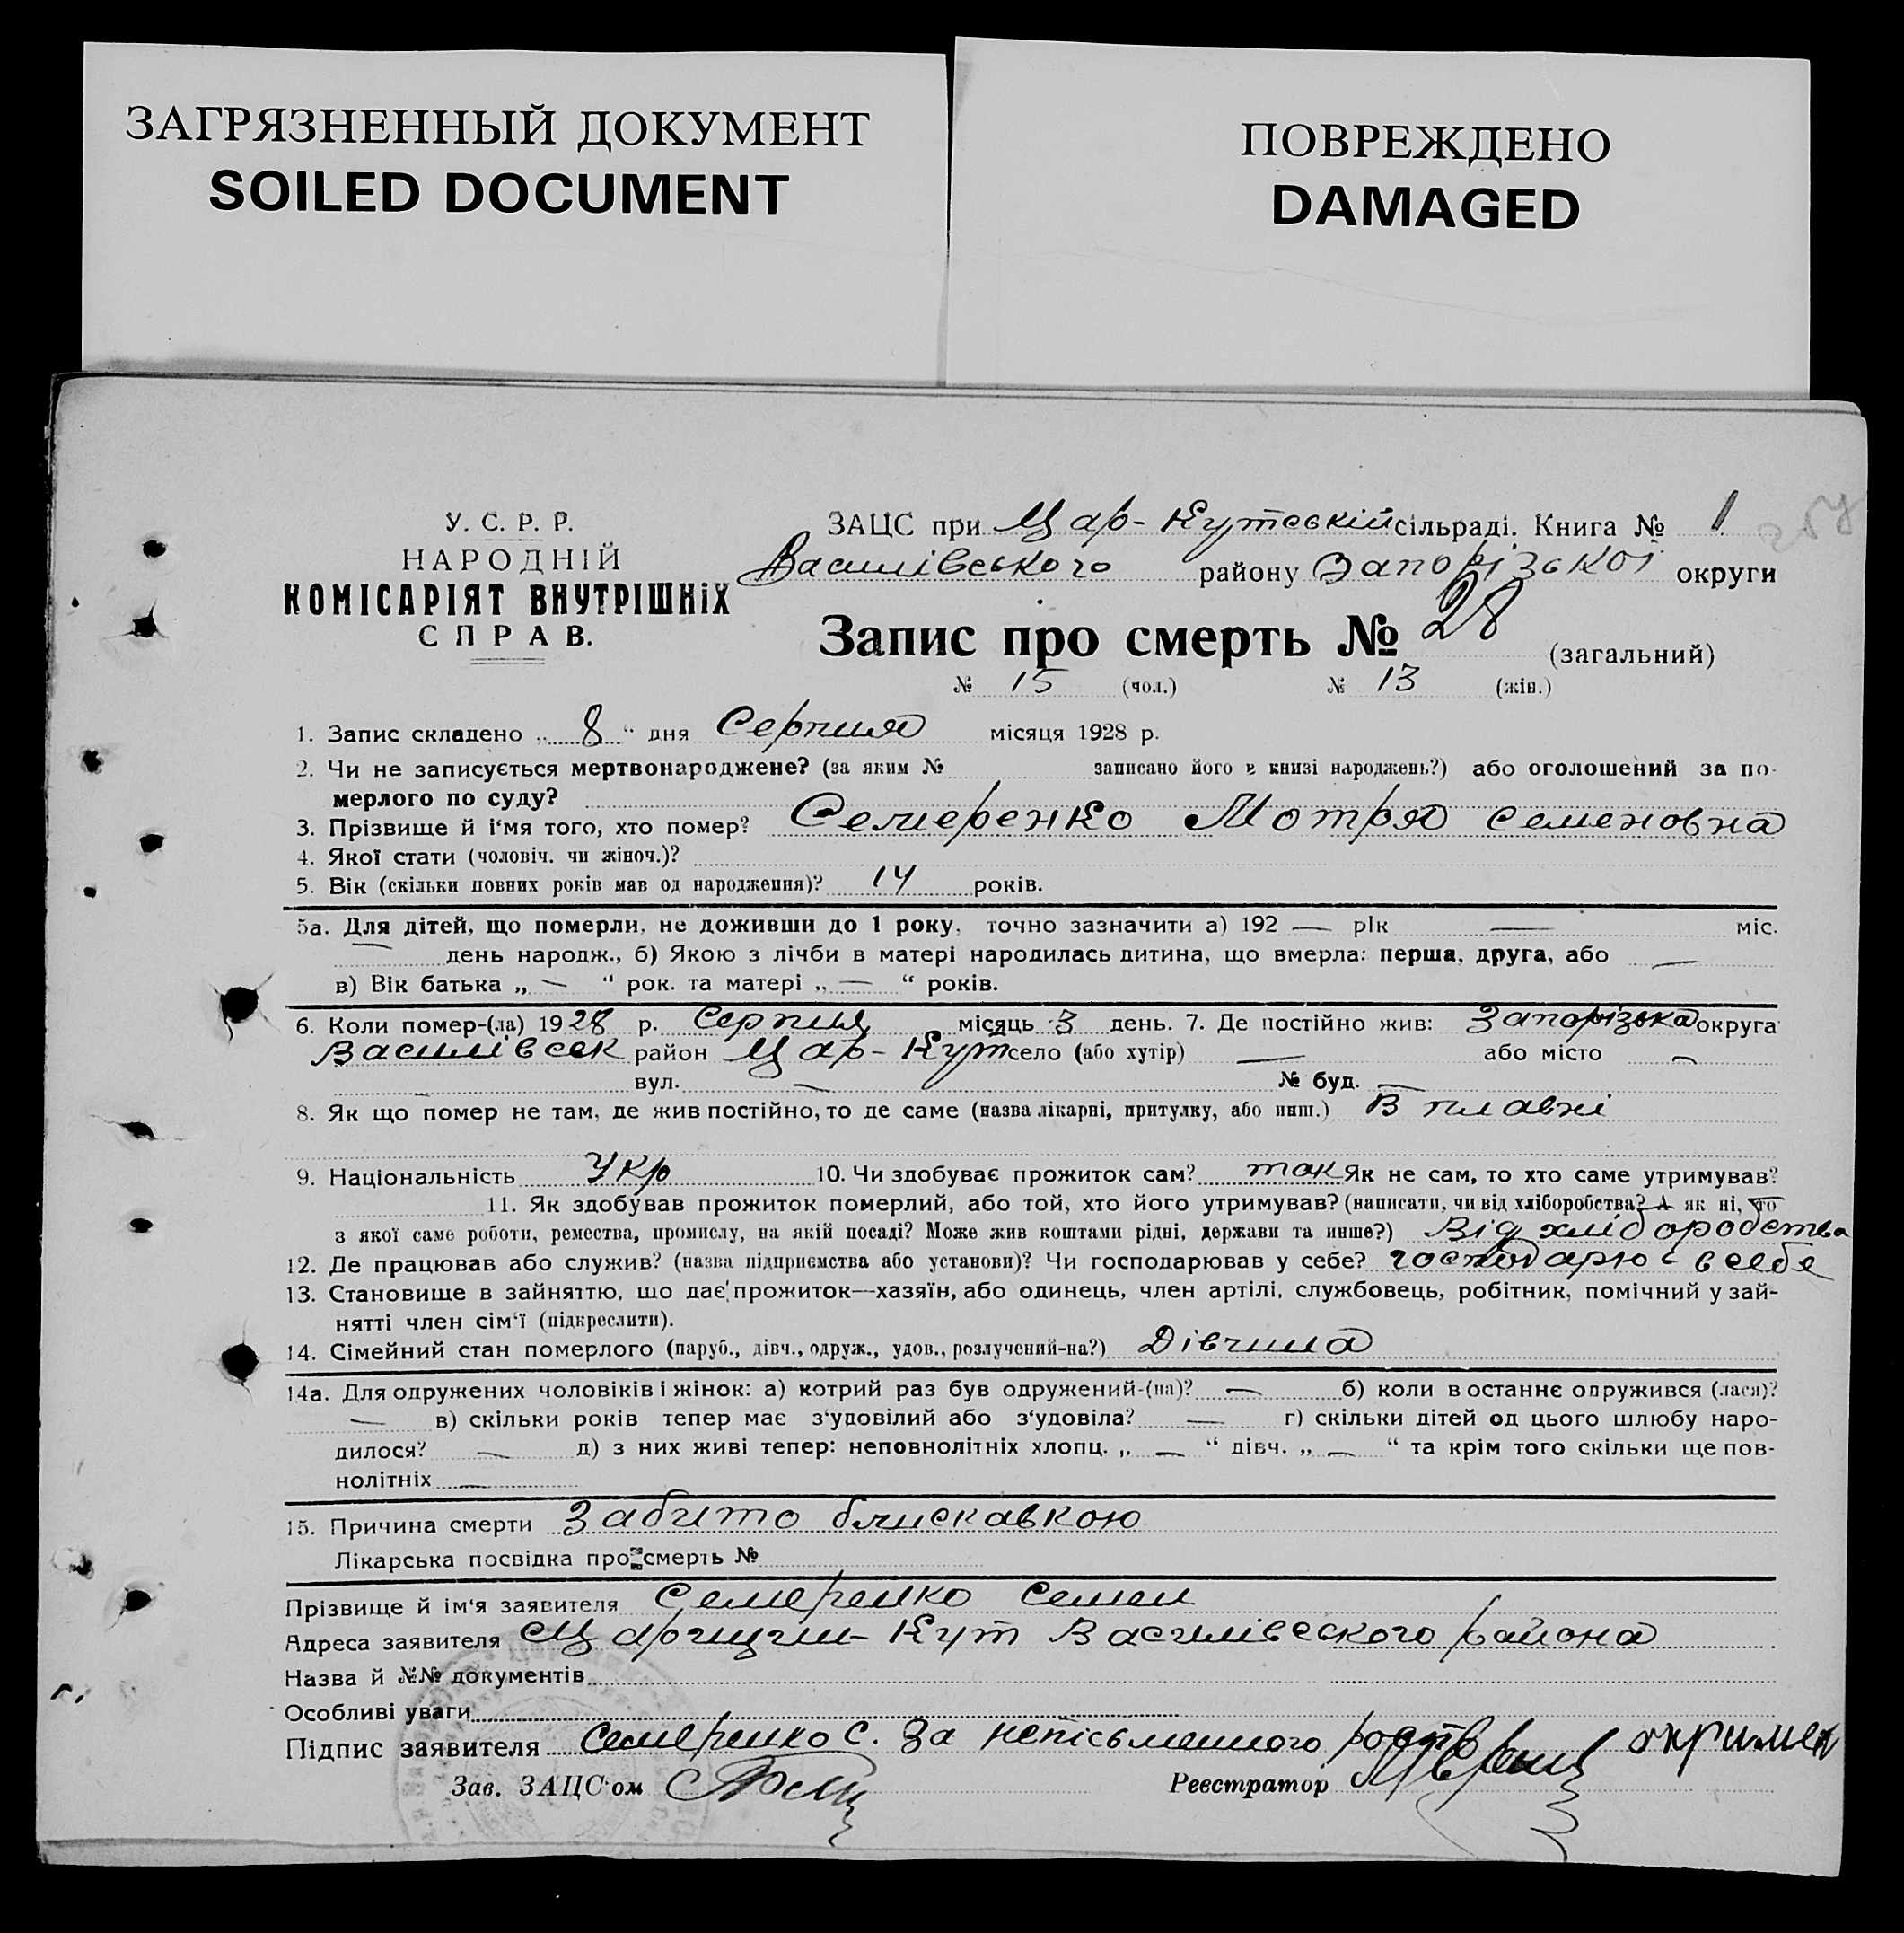 ЗАГРЯЗНЕННЫЙ ДОКУМЕНТ
SOILED DOCUMENT
ПОВРЕЖДЕНО
DAMAGED
У. С. Р. Р.
НАРОДНІЙ
КОМІСАРІЯТ ВНУТРІШНІХ
СПРАВ.
ЗАЦС при Цар-Кутській сільраді. Книга № 1
Василівського району Запорізької округи
Запис про смерть № 28 (загальний)
№ 15 (чол.) № 13 (жін.)
1. Запис складено „ 8 “ дня Серпня місяця 1928 р.
2. Чи не записується мертвонароджене? (за яким № записано його в книзі народжень?) або оголошений за по-
мерлого по суду?
3. Прізвище й і‘мя того, хто помер? Семеренко Мотря Семеновна
4. Якої стати (чоловіч. чи жіноч.)?
5. Вік (скільки повних років мав од народження)? 14 років.
5а. Для дітей, що померли, не доживши до 1 року, точно зазначити а) 192 — рік — міс.
— день народж., б) Якою з лічби в матері народилась дитина, що вмерла: перша, друга, або —
в) Вік батька „ — “ рок. та матері „ — “ років.
6. Коли помер-(ла) 1928 р. Серпня місяць 3 день. 7. Де постійно жив: Запорізька округа
Василівсск район Цар-Кут село (або хутір) — або місто —
вул. — № буд. —
8. Як що помер не там, де жив постійно, то де саме (назва лікарні, притулку, або инш.) В плавні
9. Національність Укр 10. Чи здобуває прожиток сам? так Як не сам, то хто саме утримував?
11. Як здобував прожиток померлий, або той, хто його утримував? (написати, чи від хліборобства? А як ні, то
з якої саме роботи, ремества, промислу, на якій посаді? Може жив коштами рідні, держави та инше?) Від хліборобства
12. Де працював або служив? (назва підприємства або установи)? Чи господарював у себе? господарює в себе
13. Становище в зайняттю, що дає прожиток—хазяїн, або одинець, член артілі, службовець, робітник, помічний у зай-
нятті член сім‘ї (підкреслити).
14. Сімейний стан померлого (паруб., дівч., одруж., удов., розлучений-на?) Дівчина
14а. Для одружених чоловіків і жінок: а) котрий раз був одружений-(на)? — б) коли востаннє одружився (лася)?
— в) скільки років тепер має з‘удовілий або з‘удовіла? — г) скільки дітей од цього шлюбу наро-
дилося? — д) з них живі тепер: неповнолітніх хлопц. „ — “ дівч. „ — “ та крім того скільки ще пов-
нолітніх —
15. Причина смерти Забито блискавкою
Лікарська посвідка про смерть №
Прізвище й ім‘я заявителя Семеренко Семен
Адреса заявителя с Царицин-Кут Василівсского района
Назва й №№ документів
Особливі уваги
Підпис заявителя Семеренко С. За непісьменного
Зав. ЗАЦС‘ом Реєстратор